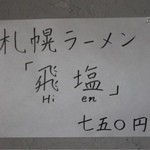 札幌ラーメン
「飛塩」
Hi en
七五〇円